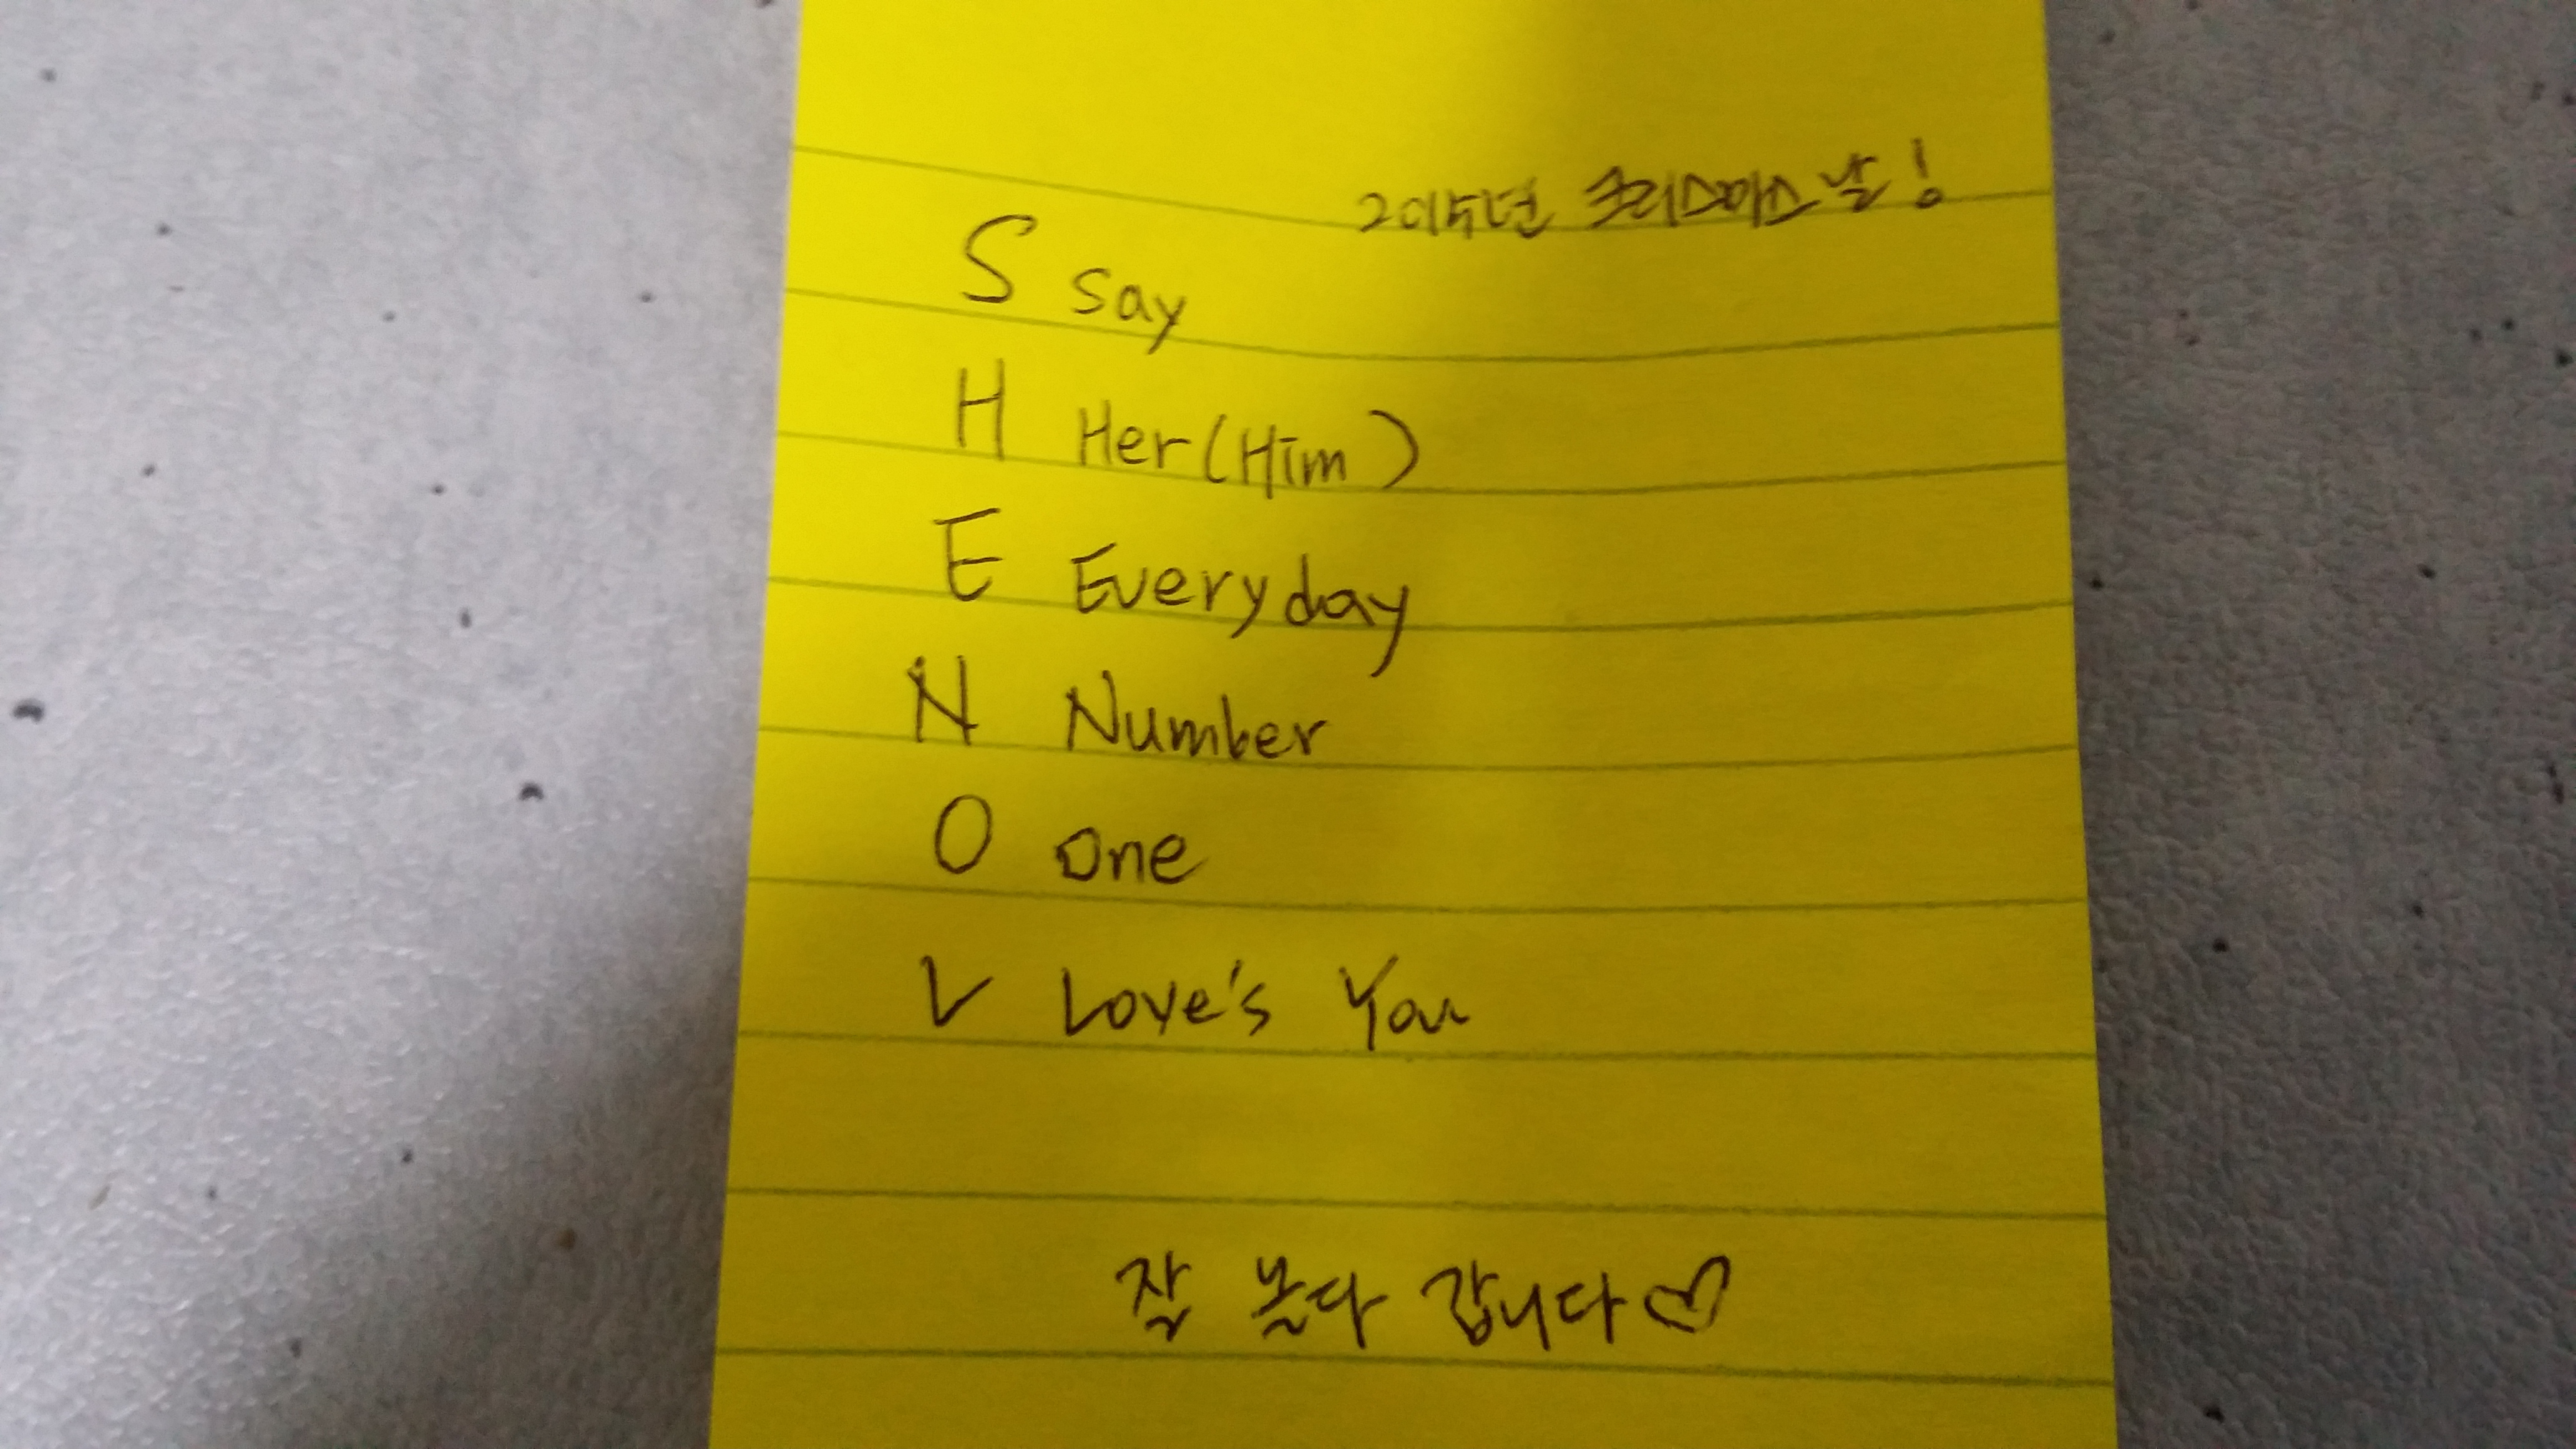 2015년 크리스마스날!
S Say
H Her(Him)
E Everyday
N Number
O One
L Love's You
잘 놀다 갑니다♡